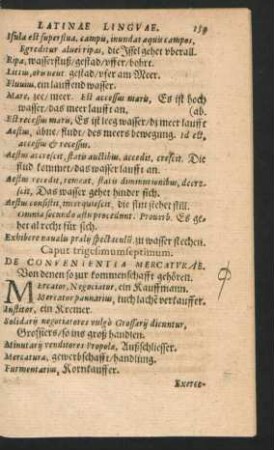 LATINAE LINGVAE. 159
Isula est superflua, campis, inundat aquis campos.
Egreditur aluei ripas, die Issel gehet vberall.
Ripa, wasserstuß/gestad/vffer/bohrt.
Littus, gestad/vfer am Meer.
Fluuius, ein lauffend wasser.
Mare, see/meer. Est accessus maris, Es ist hoch
wasser/das meer laufft an. (ab.
Est recessus maris, Es ist leeg wasser/dz meer laufft
Aestus, äbne/fludt/des meers bewegung. id est,
accessus & recessus.
Aestus accrescit, flatus auctibus, accedit, crescit. Die
flüt kommet/das wasser laufft an.
Aestus recedit, remeat, flatis diminutionibus, decre-
scit, Das wasser gehet hinder sich.
Aestus consistit, interquiescit, die flüt stehet still.
Omnia secundo aestu procedunt. Prouerb. Es ge-
het al recht für sich.
Exhibere naualis pralij spectaculũ, zu wasser stechen.
Caput trigesimumseptimum.
DE CONVENIENTIA MERCATURAE.
Von denen so zur kommenschafft gehören.
Mercator, Negociator, ein Kauffmann.
Mercator pannarius, tuch lachē verkauffer.
ein Kremer.
Solidarij negotiatores vulgò Grossarij dicuntur,
Grossiers/so ins groß handlen.
Minutarij venditores Propolæ, Außschliesser.
Mercatura, gewerbschafft/handlung.
Furmentarius, Kornkauffer.
Exerce-